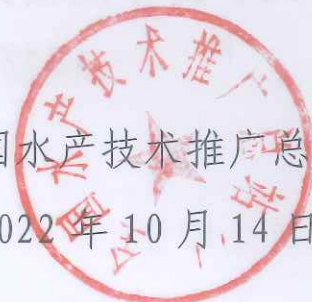 国水产技术推广总
022年10月14日
全国水产技术推广总站